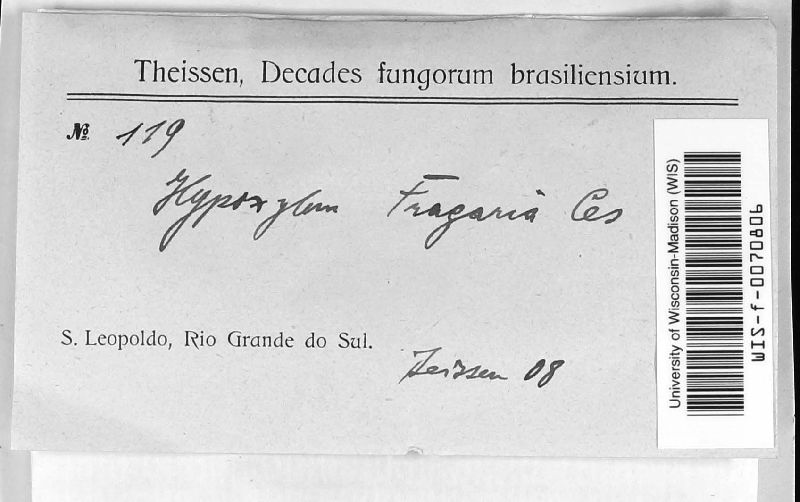 Theissen, Decades fungorum brasiliensium.
№ 119
Hypoxylum Fragaria Ces
S. Leopoldo, Rio Grande do Sul.
Theissen 08
University of Wisconsin-Madison (WIS)
WIS-f-0070806